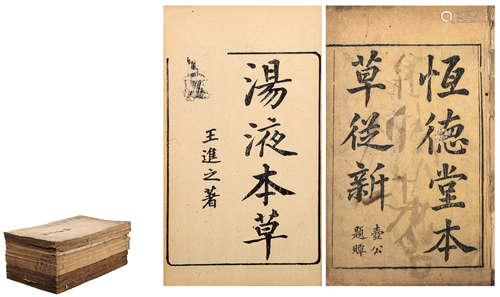 湯液本草
王進之著
恆德堂本
草從新
壺公
題